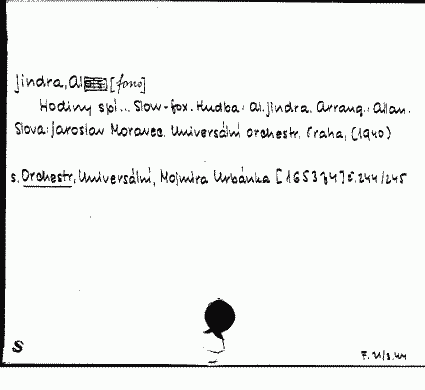 Jindra, Al [fono]
Hodiny spí... Slow-fox. Hudba: Al. Jindra. Arrang.: Allan.
Slova: Jaroslav Moravec. Universální orchestr. Praha, (1940)
s. Orchestr, Universální, Mojmíra Urbánka [165374] č. 244/245
S